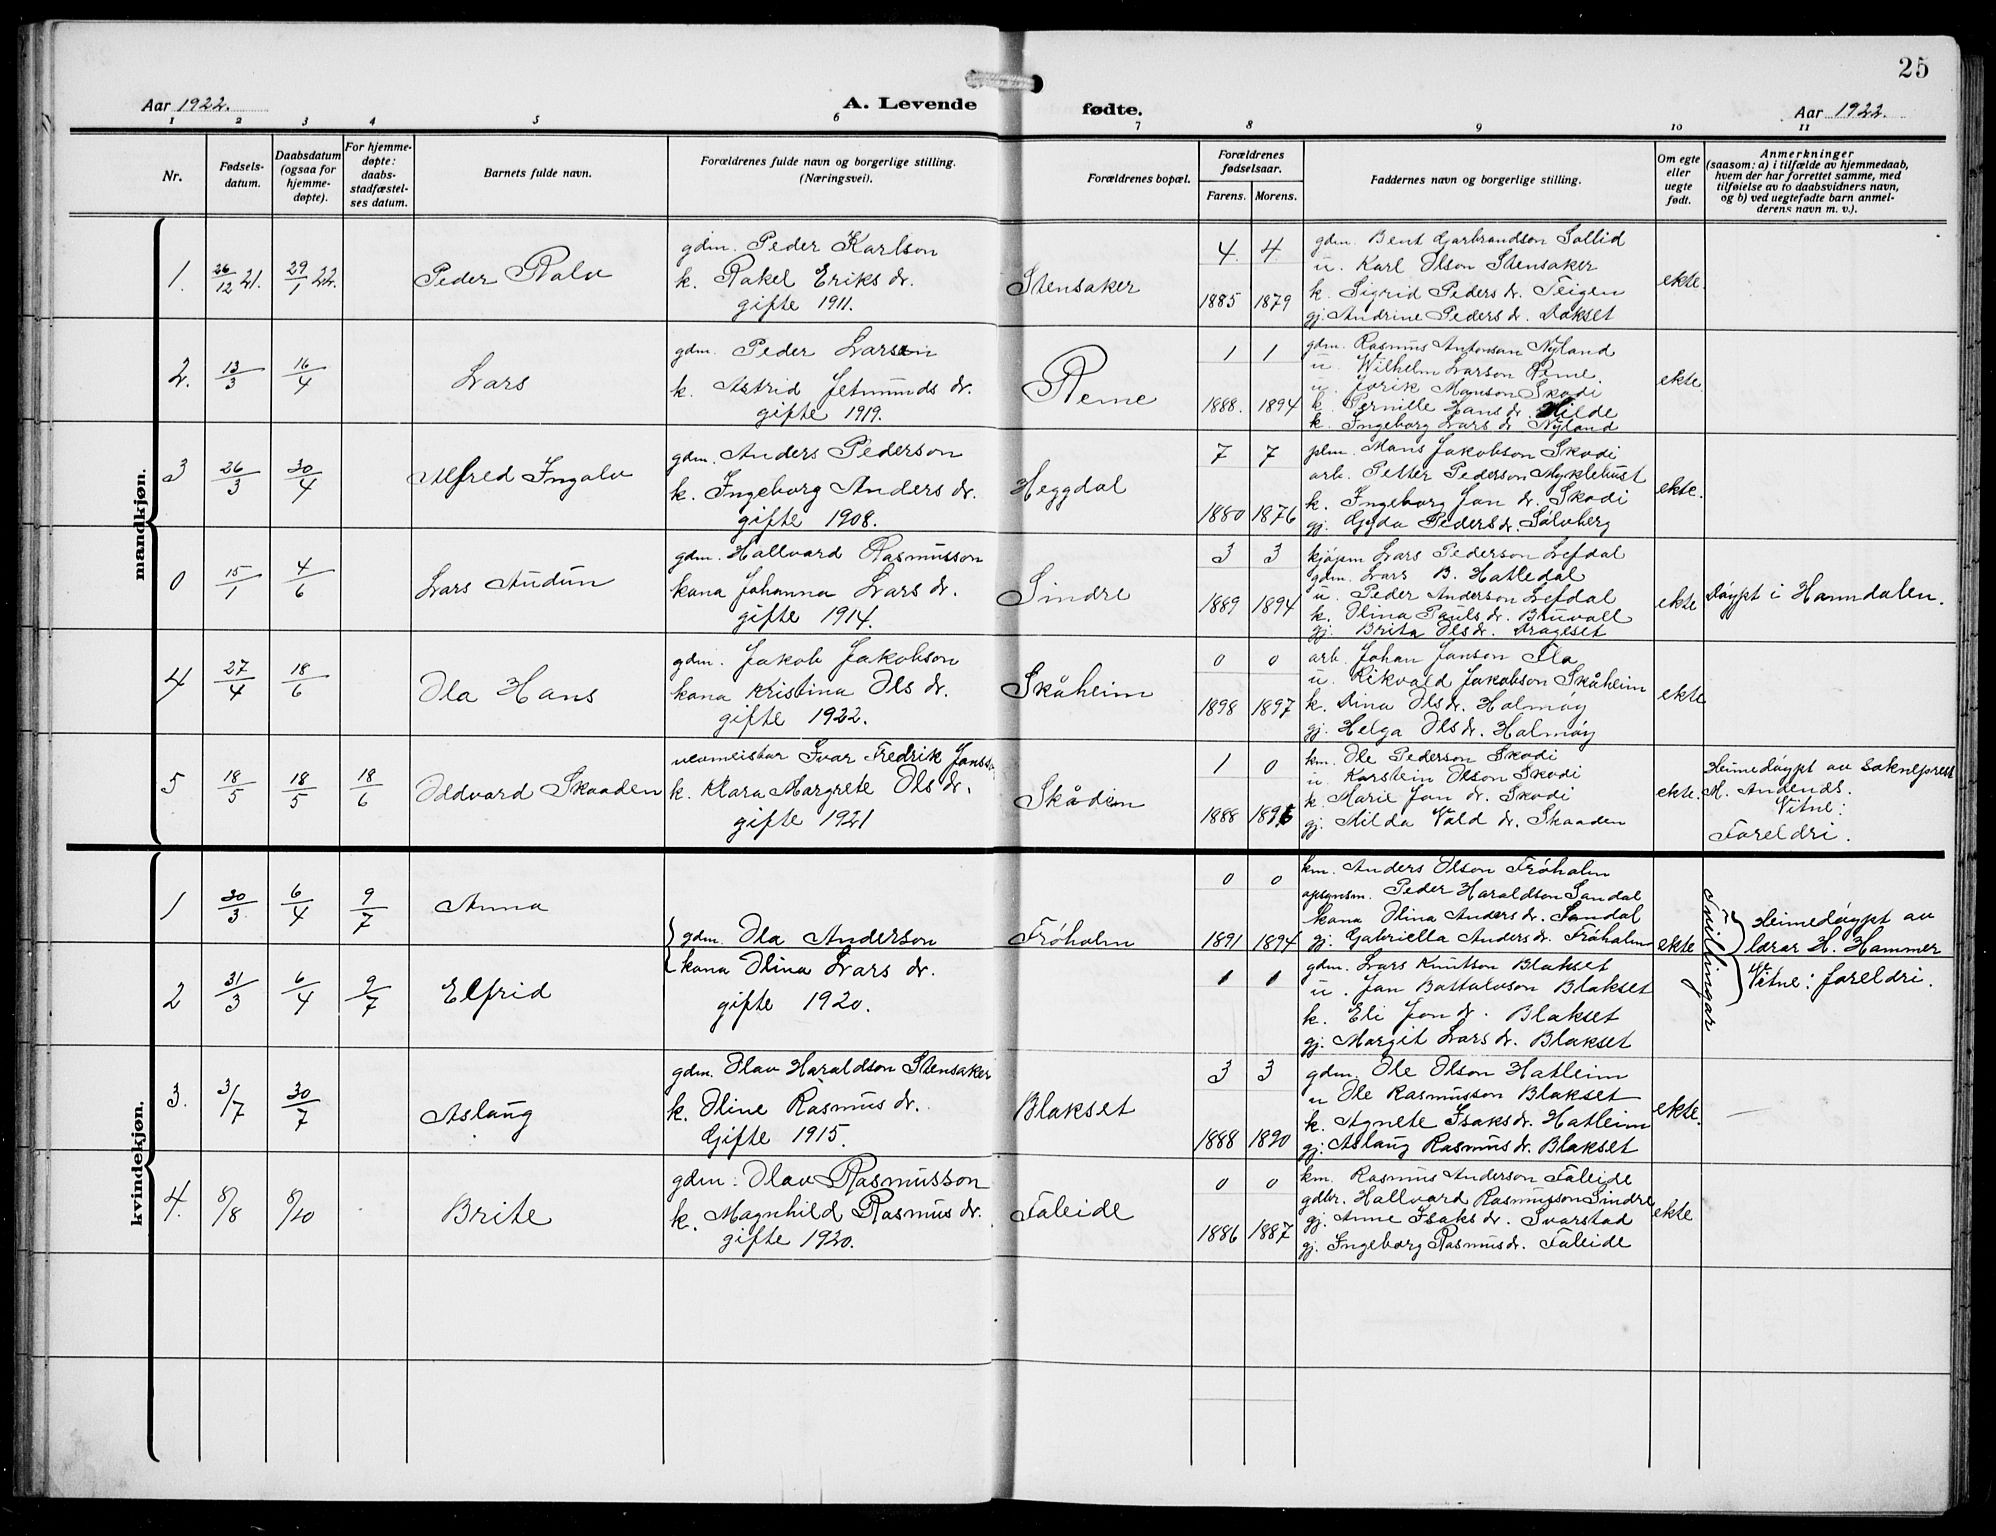 25
Aar 1922.
A. Levende fødte.
Aar 1922.
1 2 3 4 5 6 7 8 9 10 11
Nr.
Fødsels-
datum.
Daabsdatum
(ogsaa for
hjemme-
døpte).
For hjemme-
døpte:
daabs-
stadfæstel-
ses datum.
Barnets fulde navn.
Forældrenes fulde navn og borgerlige stilling.
(Næringsvei).
Forældrenes bopæl.
Forældrenes
fødselsaar.
Farens. Morens.
Faddernes navn og borgerlige stilling.
Om egte
eller
uegte
født.
Anmerkninger
(saasom: a) i tilfælde av hjemmedaab,
hvem der har forrettet samme, med
tilføielse av to daabsvidners navn,
og b) ved uegtefødte barn anmel-
derens navn m. v.).
mandkjøn.
1. 26/12 21. 29/1 22. Peder Ralv
gdm. Peder Karlson
k. Rakel Eriks dr.
gifte 1911.
Stensaker
4. 4.
1885 1879
gdm. Bent Garbrandson Sollid
u. Karl Olson Stensaker
k. Sigrid Peders dr. Teigen
gj. Andrine Peders dr. Lokset
ekte.
2. 13/3 16/4 Lars
gdm. Peder Larson
k. Astrid Jetmunds dr.
gifte 1919.
Reme
1 1
1888. 1894
gdm. Rasmus Antonson Nyland
u. Wilhelm Larson Reme
u. Jorik Manson Skodi
k. Pernille Hans dr. Hilde
k. Ingeborg Lars dr Nyland
ekte.
3 26/3 30/4 Alfred Ingalv
gdm. Anders Pederson
k. Ingeborg Anders dr.
gifte 1908.
Heggdal
7 7
1880 1876
plm. Mans Jakobson Skodi
arb. Petter Pederson Myklebust
k. Ingeborg Jon dr. Skodi
gj. Gyda Peders dr. Sølvberg
ekte.
0 15/1 4/6 Lars Audun
gdm. Hallvard Rasmusson
kona Johanna Lars dr.
gifte 1914.
Sindre
3 3
1889 1894
kjøpm Lars Pederson Lefdal
gdm. Lars B. Hatledal
u. Peder Anderson Lefdal
k. Olina Pauls dr. Bruvoll
gj. Brita Ols dr. Drageset
ekte
Døypt i Horndalen.
4 27/4 18/6 Ola Hans
gdm. Jakob Jakobson
kona Kristina Ols dr.
gifte 1922.
Skåheim
0 0
1898 1897
arb. Johan Janson Flo
u. Rikvald Jakobson Skåheim
k. Dina Ols dr. Holmøy
gj. Helga Ols dr. Holmøy
ekte
5 18/5 18/5 18/6 Oddvard Skaaden
vevmeistar Ivar Fredrik Jansson
k. Klara Margrete Ols dr.
gifte 1921
Skådin
1 0
1888 1896
km. Ole Pederson Skodi
u. Karstein Olson Skodi
k. Marie Jon dr. Skodi
gj. Milda Vald dr. Skaaden
ekte.
Heimedøypt av sokneprest
M. Andenæs.
Vitne:
Foreldri.
kvindekjøn.
1 30/3 6/4 9/7 Anna
gdm. Ola Anderson
kona Olina Lars dr.
gifte 1920.
Frøholm
0 0
1891 1894
km. Anders Olson Frøholm
opsynsm. Peder Haraldson Sandal
kona Olina Anders dr. Sandal
gj. Gabriella Anders dr. Frøholm
ekte
Tvillingar
Heimedøypt av
lærar H. Hammer
Vitne: foreldri.
2 31/3 6/4 9/7 Elfrid
1 1
gdm. Lars Knutson Blakset
u. Jan Battalvson Blakset
k. Eli Jon dr. Blakset
gj. Margit Lars dr. Blakset
3. 3/7 30/7 Aslaug
gdm. Olav Haraldson Stensaker
k. Oline Rasmus dr.
Gifte 1915.
Blakset
3 3
1888 1890
gdm. Ole Olson Hatleim
u Ole Rasmusson Blakset
k. Agnete Isaks dr. Hatleim
gj. Aslaug Rasmus dr. Blakset
ekte.
4. 8/8 8/10 Brite
gdm. Olav Rasmusson
k. Magnhild Rasmus dr.
gifte 1920.
Faleide
0 0
1886 1887
km. Rasmus Anderson Faleide
gdbr. Hallvard Rasmusson Sindre
gj. Anne Isaks dr. Svarstad
gj. Ingeborg Rasmus dr. Faleide
ekte